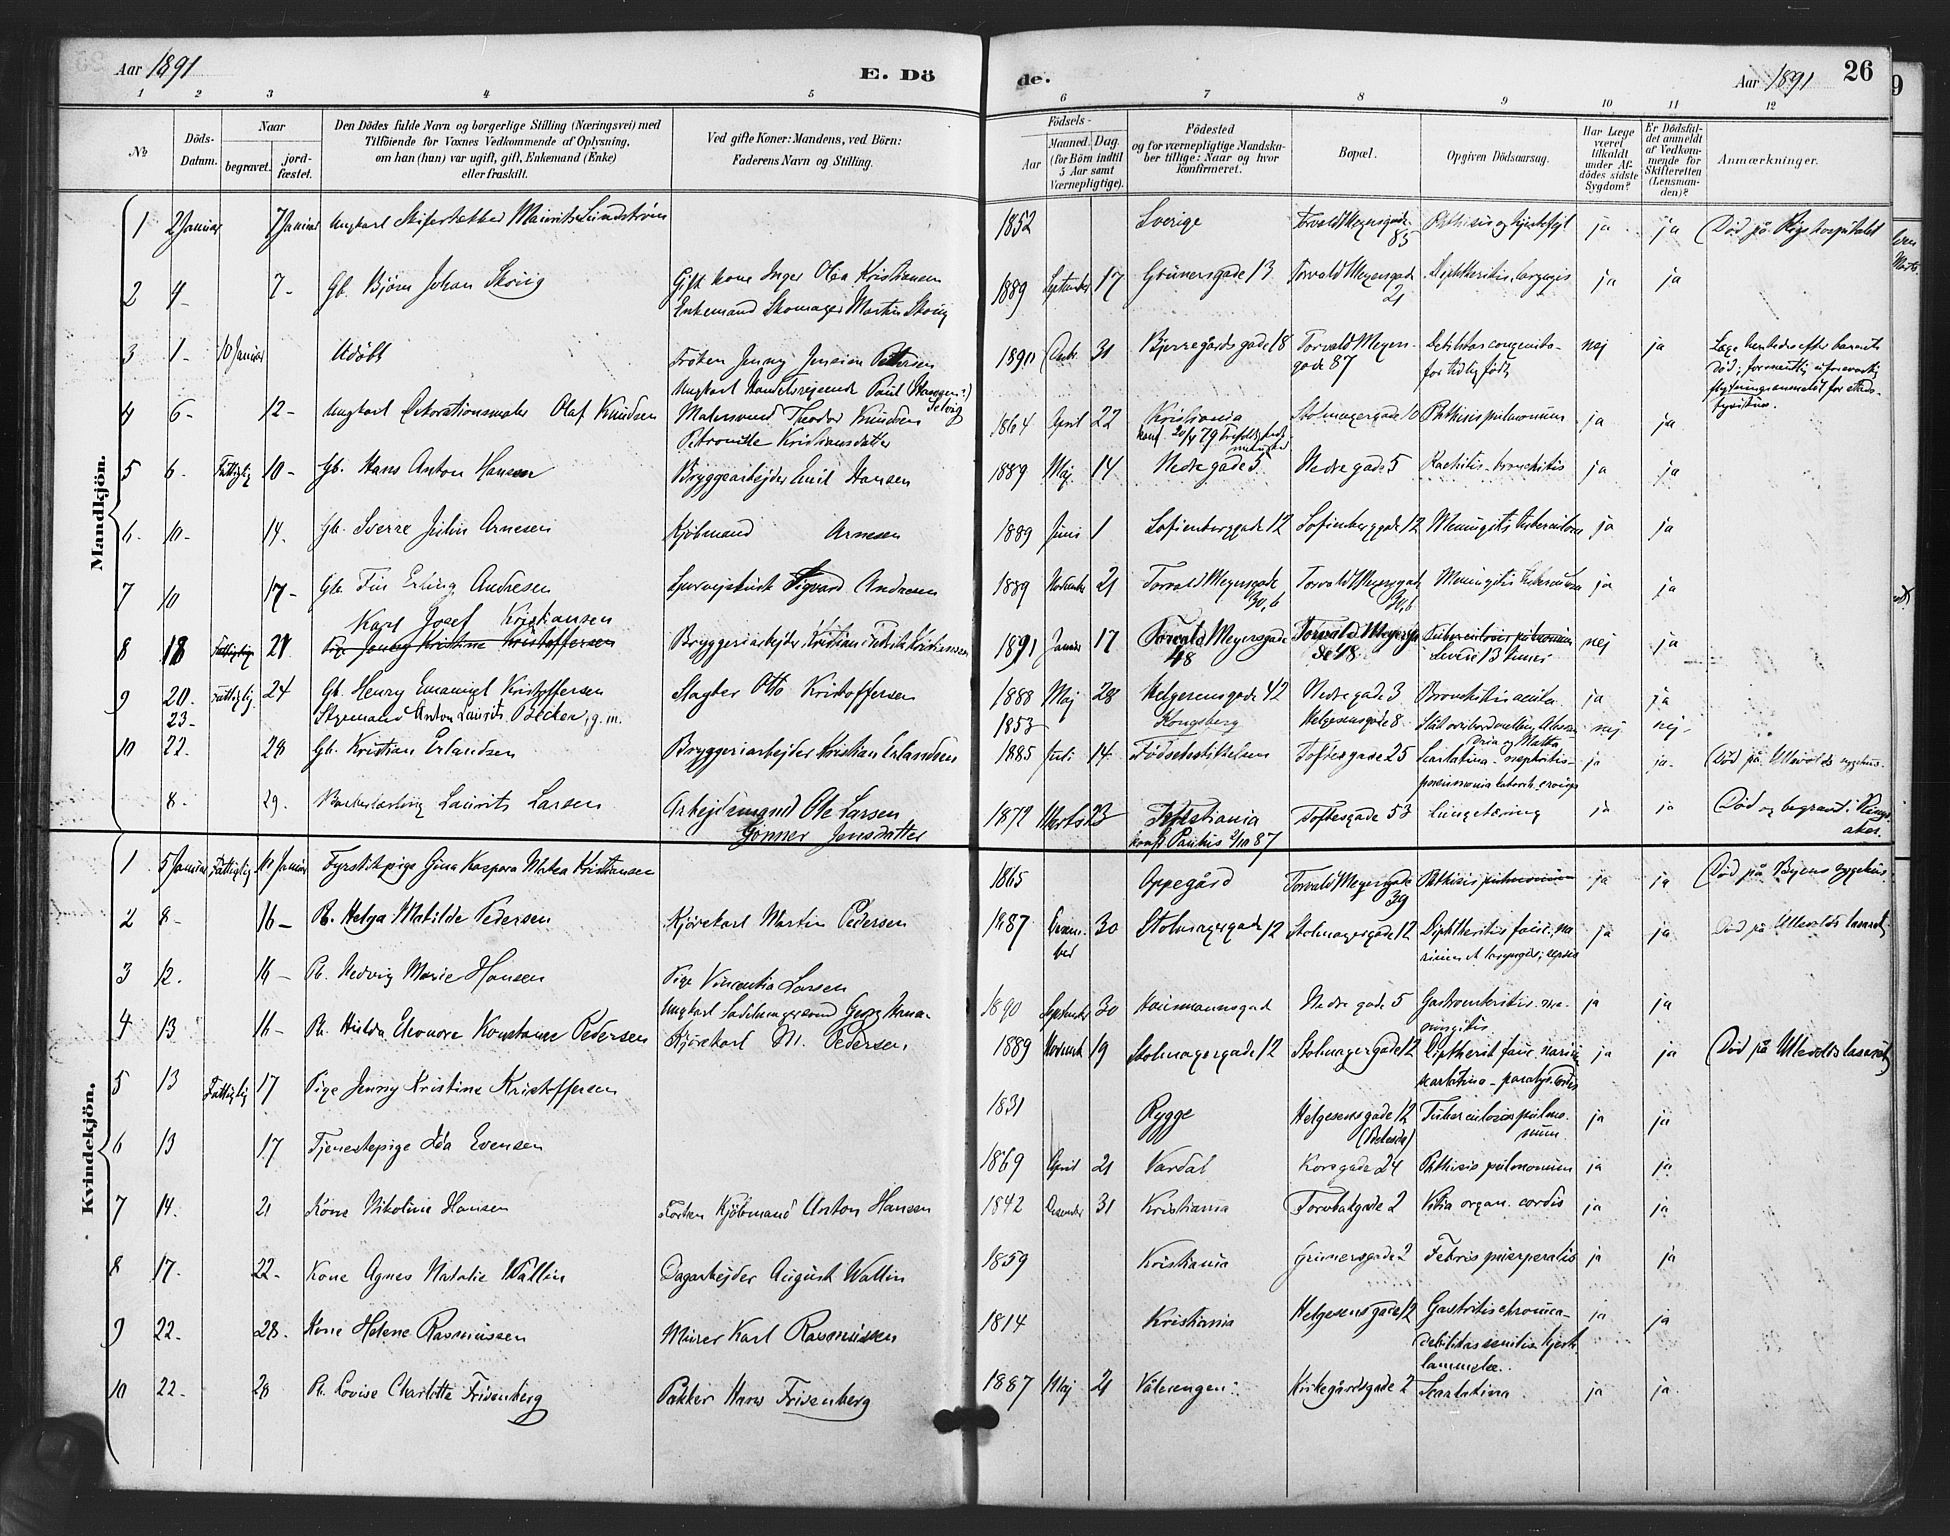 Aar 1891
E. Dö
de.
Aar 1891
26
1 2 3 4 5 6 7 8 9 10 11 12
№
Döds-Datum.
Naar
begravet.
jord-fæstet.
Den Dödes fulde Navn og borgerlige Stilling (Næringsvei) med
Tilföiende for Voxnes Vedkommende af Oplysning,
om han (hun) var ugift, gift, Enkemand (Enke)
eller fraskilt.
Ved gifte Koner: Mandens, ved Börn:
Faderens Navn og Stilling.
Födsels-
Aar
Maaned. (for Börn indtil 5 Aar samt Værnepligtige).
Dag.
Födested
og for værnepligtige Mandska-
ber tillige: Naar og hvor
konfirmeret.
Bopæl.
Opgiven Dödsaarsag.
Har Læge været tilkaldt under Af-dödes sidste Sygdom?
Er Dödsfal-det anmeldt af Vedkom-mende for Skifteretten (Lensman-den)?
Anmærkninger.
Mandkjön.
1 2 Januar 7 Januar Ungkarl Skifertækker Maurits Lundström 1852 Sverige Torvald Meyersgade 85 Phthisis og hjertefejl ja ja Död på Rigshospitalet
2 4 - 7 - Gb. Bjørn Johan Skoug Gift kone Inger Olea Kristiansen
Enkemand Skomager Martin Skoug 1889 September 17 Grünersgade 13 Torvald Meyersgade 21 Diphtheritis laryngis ja ja
3 1 - 10 Januar Udöbt Fröken Jenny Jensine Pettersen
Ungkarl Handelsreisende Paul 1890 Decbr. 31 Bjerregårdsgade 18 Torvald Meyers-
gade 87 Debilitas congenita -
for tidlig födt nej ja Læge hentedes efter barnets
död;
4 6 - 12 - Ungkarl Dekorationsmaler Olaf Knudsen Malersvend Theodor Knudsen
Petronille Kristiansdatter 1864 April 22 Kristiania
konf. 20/4 79 Stolmagergade 10 Phthisis pulmonum ja ja
5 6 - Fattiglig 10 - Gb. Hans Anton Hansen Bryggearbejder Emil Hansen 1889 Maj 14 Nedregade 5 Nedregade 5 Rachitis - bronchitis ja ja
6. 10 - 14. Gb. Sverre Julin Arnesen Kjöbmand Arnesen 1889 Juni 1 Sofienberggade 12 Sofienberggade 12 Meningitis tuberculosa ja ja
7 10 17 - Gb. Fin Erling Andresen Sigvard Andresen 1889 November 21 Torvald Meyersgade 30,b Torvald Meyersgade 30,b Meningitis tuberculosa ja ja
Karl Josef Kristiansen
8 18 Fattiglig 21 Pige Jenny Kristine Kristoffersen Bryggeriarbejder Kristian Fredrik Kristiansen 1891 Januar 17 Torvald Meyersgade 48 Torvald Meyersga
de 48 Tuberculosis pulmonum
Levede 13 timer nej ja
9 20. Fattiglig. 24 Gb. Henry Emanuel Kristoffersen Slagter Otto Kristoffersen 1888 Maj 28 Helgesensgade 42 Nedregade 3 Bronchitis acuta ja ja
23 - Styrmand Anton Laurits Becker, g. m. 1853 Kongsberg Helgesensgade 8 Slåt overbord mellem
og Malta nej nej -
10 22. 28 Gb. Kristian Erlandsen Bryggeriarbejder Kristian Erlandsen 1885 Juli 14 Födselsstiftelsen Toftesgade 25 Scarlatina - nephritis -
ja ja - Död på Ullevolds sygehus.
8. 29. Laurits Larsen Arbejdsmand Ole Larsen
Gunner Jensdatter 1872 Marts 23 Kristiania
konf. Paulus 2/10 87 Toftesgade 53 Lungetæring ja ja Död og begravet i
Kvindekjön.
1 5 Januar Fattiglig 11 Januar Fyrstikpige Gina Kaspara Matea Kristiansen 1865 Oppegård Torvald Meyersgade 39 Phthisis pulmonum ja ja Död på Byens sygehus.
2 8 - 16 - Pb. Helga Matilde Pedersen Kjörekarl Martin Pedersen 1887 Decem-
ber 30 Stolmagergade 12 Stolmagergade 12 Diphtheritis fauc., na-
rium et laryngis; sepsis ja ja Död på Ullevolds lasaret
3 12. 16 - Pb. Hedvig Marie Hansen Pige Vincentia Larsen
Ungkarl Sadelmagersvend Georg Hansen 1890 September 30 Hausmannsgade Nedre gade 5 Gastroenteritis - me-
ningitis ja ja
4 13 16 - Pb. Hilda Eleonore Konstance Pedersen Kjörekarl M. Pedersen. 1889 November 19 Stolmagergade 12 Stolmagergade 12 Diptherit. fauc. narium
scarlatina - paralys. cordis ja ja Död på Ullevolds lasaret
5 13 Fattiglig 17 Pige Jenny Kristine Kristoffersen 1831 Rygge Helgesensgade 12
(Betesda) Tuberculosis pulmo-
num ja ja
6 13 17 Tjenestepige Ida Evensen 1869 April 21 Vardal Korsgade 24 Phthisis pulmonum ja ja
7 14. 21 Kone Nikoline Hansen Forhen Kjöbmand Anton Hansen 1842 December 31 Kristiania Torvbakgade 2 Vitia organ. cordis ja ja
8 17. 22 - Kone Agnes Natalie Wallin Dagarbejder August Wallin 1859 Kristiania Grünersgade 2 Febris puerperalis ja ja
9 22. 28. Kone Helene Rasmussen Murer Karl Rasmussen 1814 Kristiania Helgesensgade 12 Gastritis chronica -
debilitas senilis hjert-
lammelse. ja ja
10 22 - 28 Pb. Lovise Charlotte Frisenberg Pakker Hans Frisenberg 1887 Maj 21 Vålerengen Kirkegårdsgade 2 Scarlatina ja ja